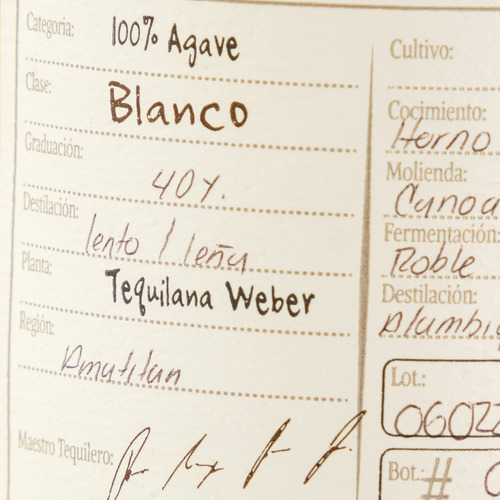 Categoria: 100% Agave
Clase: Blanco
Graduación: 40%.
Destilación: lento / leña
Planta: Tequilana Weber
Región: Amatitan
Maestro Tequilero:
Cultivo:
Cocimiento:
Horno
Molienda:
Cynoa
Fermentación:
Roble
Destilación:
Alambi
Lot.:
06022
Bot.: #